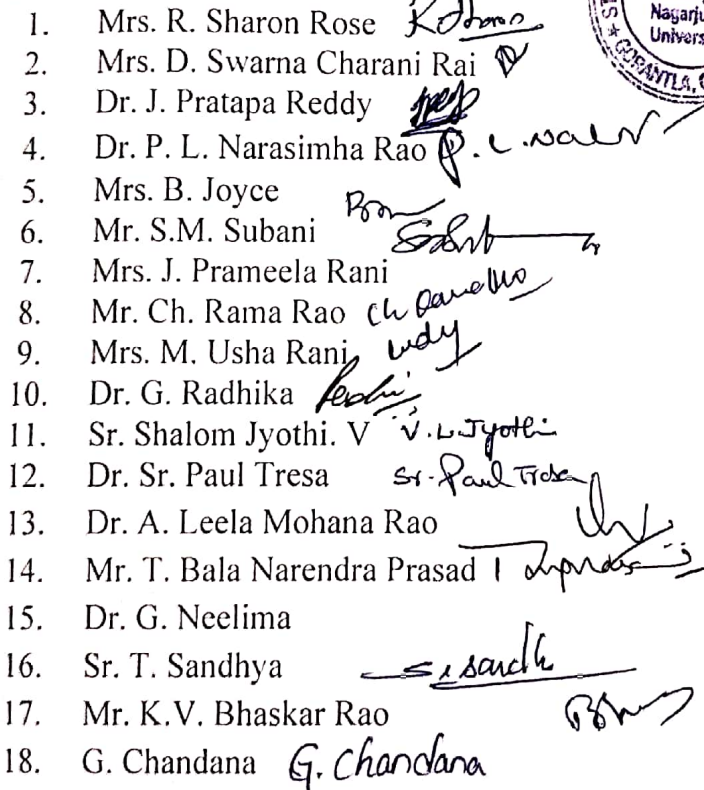 Nagarju
Univers
GORANTLA, G
1. Mrs. R. Sharon Rose
2. Mrs. D. Swarna Charani Rai
3. Dr. J. Pratapa Reddy
4. Dr. P. L. Narasimha Rao P. L. Nar
5. Mrs. B. Joyce
6. Mr. S.M. Subani
7. Mrs. J. Prameela Rani
8. Mr. Ch. Rama Rao Ch
9. Mrs. M. Usha Rani
10. Dr. G. Radhika
11. Sr. Shalom Jyothi. V V. L. Jyothi
12. Dr. Sr. Paul Tresa Sr. Paul Tresa
13. Dr. A. Leela Mohana Rao
14. Mr. T. Bala Narendra Prasad
15. Dr. G. Neelima
16. Sr. T. Sandhya
17. Mr. K.V. Bhaskar Rao
18. G. Chandana G. Chandana